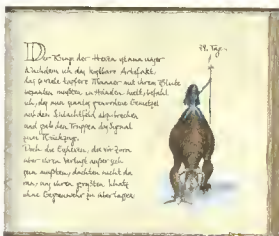 Der Kampf der Hexen genau unser
Nachdem ich das kostbare Artefakt,
das so viele tapfere Männer mit ihrem Blute
bezahlen mußten, in Händen hielt, befahl
ich, das nun ganz grundlose Gemetzel
auf dem Schlachtfeld abzubrechen
und gab den Truppen das Signal
zum Rückzug.
Doch die Echsen, die vor Zorn
über ihren Verlust außer sich
sein mußten, dachten nicht da
ran, mir ihren größten Schatz
ohne Gegenwehr zu überlassen
29. Tag.